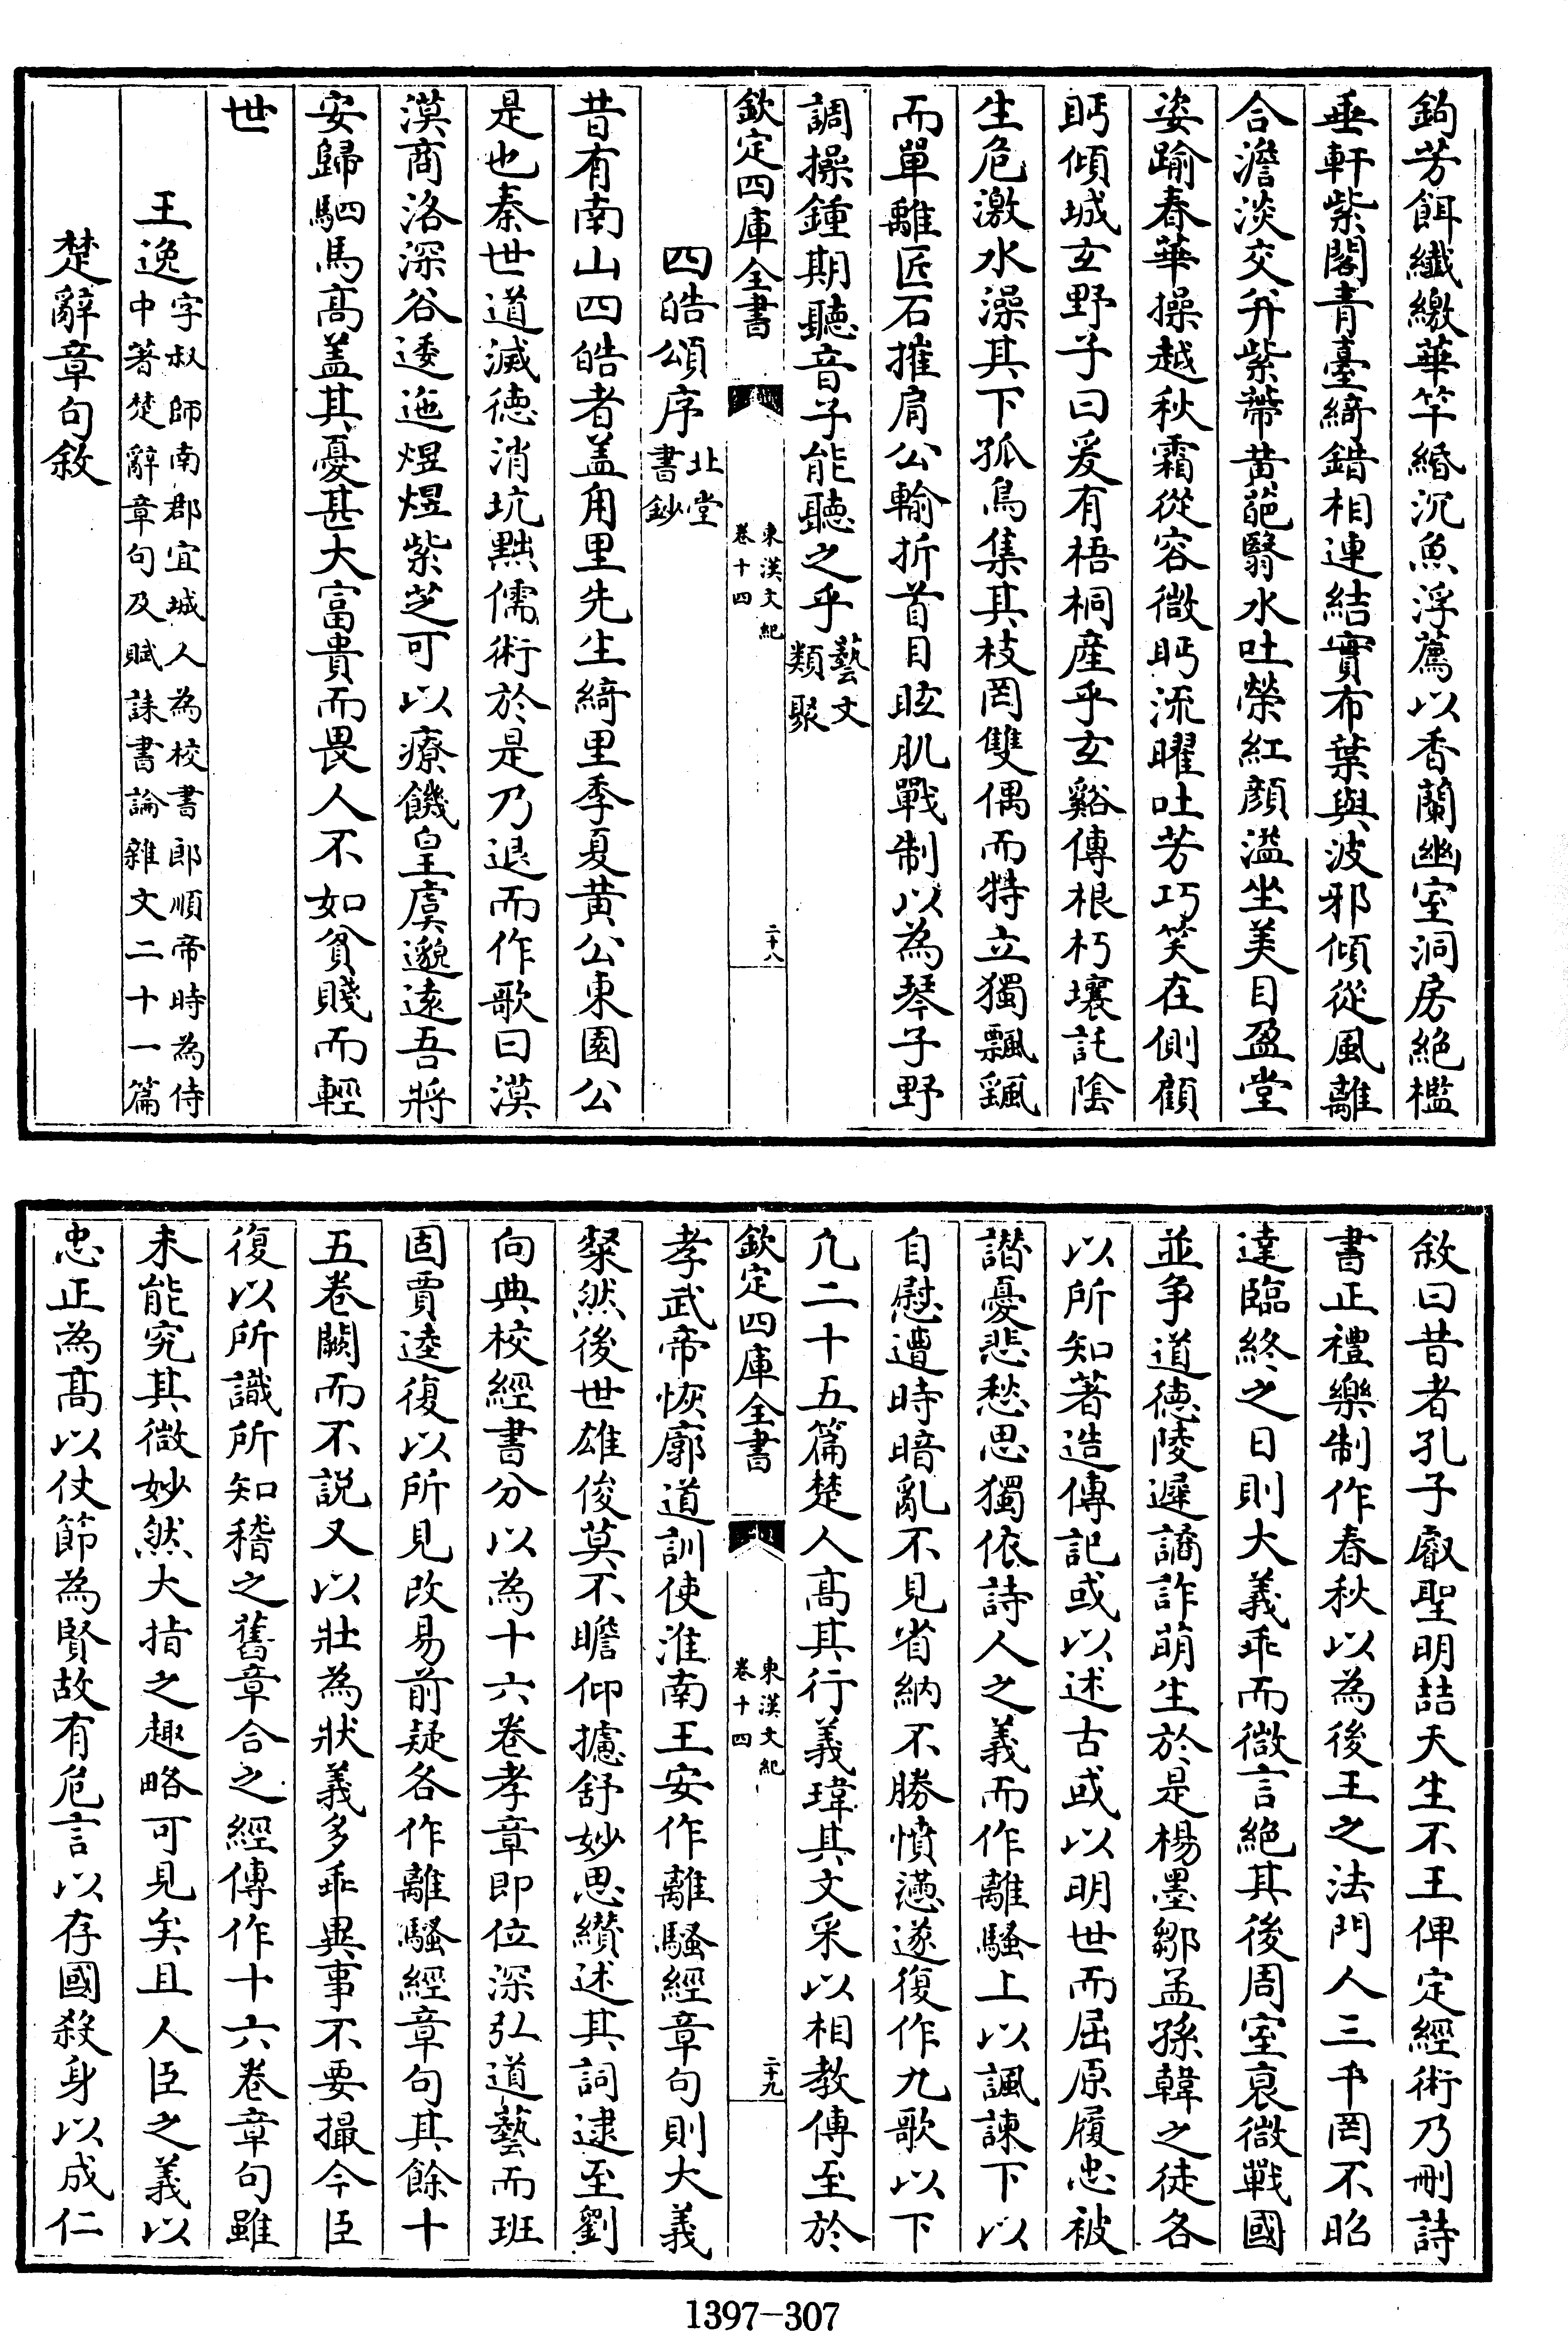 鉤芳餌纎繳華竿緡沉魚浮薦以香蘭幽室洞房絶檻
垂軒紫閣青臺綺錯相連結實布葉與波邪傾從風離
合澹淡交并紫蔕黄葩翳水吐榮紅顔溢坐美目盈堂
姿踰春華操越秋霜從容微眄流曜吐芳巧笑在側顧
眄傾城玄野子曰爰有梧桐産乎玄谿傳根朽壤託陰
生危激水澡其下孤鳥集其枝罔雙偶而特立獨飄颻
而單離匠石摧肩公輸折首目眩肌戰制以為琴子野
調操鍾期聽音子能聽之乎藝文類聚
欽定四庫全書
東漢文紀
卷十四
二十八
四皓頌序北堂書鈔
昔有南山四皓者盖甪里先生綺里季夏黄公東園公
是也秦世道滅徳消坑黜儒術於是乃退而作歌曰漠
漠商洛深谷逶迤煜煜紫芝可以療饑皇虞邈逺吾將
安歸駟馬高盖其憂甚大富貴而畏人不如貧賤而輕
世
王逸字叔師南郡宜城人為校書郎順帝時為侍中著楚辭章句及賦誄書論雜文二十一篇
楚辭章句敘
敘曰昔者孔子叡聖明喆天生不王俾定經術乃刪詩
書正禮樂制作春秋以為後王之法門人三千罔不昭
達臨終之日則大義乖而微言絶其後周室衰微戰國
並爭道徳陵遲譎詐萌生於是楊墨鄒孟孫韓之徒各
以所知著造傳記或以述古或以明世而屈原履忠被
譛憂悲愁思獨依詩人之義而作離騷上以諷諫下以
自慰遭時暗亂不見省納不勝憤懣遂復作九歌以下
凢二十五篇楚人髙其行義瑋其文采以相教傳至於
欽定四庫全書
東漢文紀
卷十四
二十九
孝武帝恢廓道訓使淮南王安作離騷經章句則大義
粲然後世雄俊莫不瞻仰攄舒妙思纘述其詞逮至劉
向典校經書分以為十六卷孝章即位深弘道藝而班
固賈逵復以所見改易前疑各作離騷經章句其餘十
五卷闕而不説又以壯為狀義多乖異事不要撮今臣
復以所識所知稽之舊章合之經傳作十六卷章句雖
未能究其微妙然大指之趣略可見矣且人臣之義以
忠正為髙以仗節為賢故有危言以存國殺身以成仁
1397-307